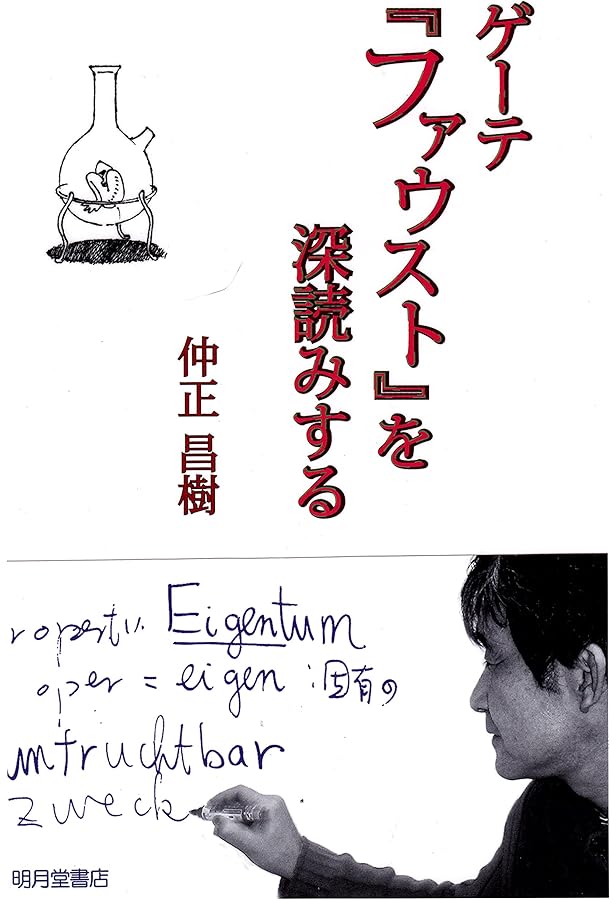 ゲーテ
『ファウスト』を
深読みする
仲正 昌樹
roperty. Eigentum
oper = eigen : 固有の
nfruchtbar
zweck
明月堂書店